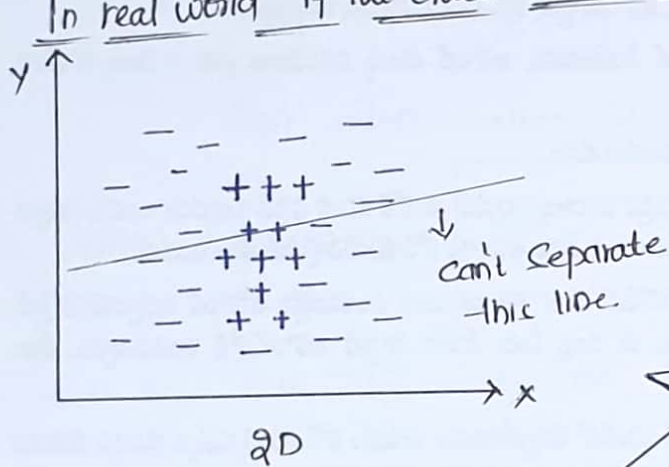 In real world if
Y
can't separate
this line.
X
2D